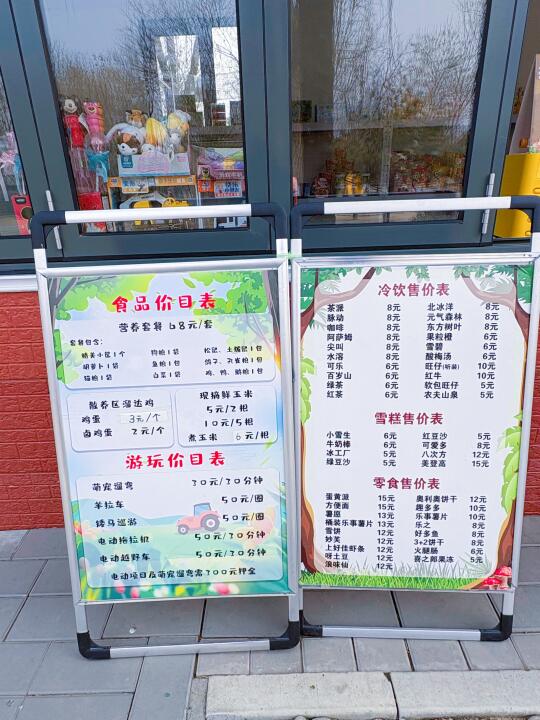 食品价目表
营养套餐 68元/套
套餐包含:
精美小筐1个 狗粮1袋 松鼠、土拨鼠1包
胡萝卜1袋 鱼粮1袋 鸽子、孔雀粮1包
猫粮1袋 白菜1袋 鸡、鸭、鹅粮1包
散养区溜达鸡
鸡蛋 3元/个
卤鸡蛋 2元/个
现摘鲜玉米
5元/2根
10元/5根
煮玉米 6元/根
游玩价目表
萌宠遛弯 30元/30分钟
羊拉车 50元/圈
矮马巡游 50元/圈
电动拖拉机 50元/30分钟
电动越野车 50元/30分钟
电动项目及萌宠遛弯需300元押金
冷饮售价表
茶派 8元 北冰洋 8元
脉动 8元 元气森林 8元
咖啡 8元 东方树叶 8元
阿萨姆 8元 果粒橙 8元
尖叫 8元 雪碧 6元
水溶 8元 酸梅汤 6元
可乐 6元 旺仔(听装) 10元
百岁山 6元 红牛 10元
绿茶 6元 软包旺仔 5元
红茶 6元 农夫山泉 5元
雪糕售价表
小雪生 6元 红豆沙 5元
牛奶棒 6元 可爱多 8元
冰工厂 5元 八次方 12元
绿豆沙 5元 美登高 15元
零食售价表
蛋黄派 15元 奥利奥饼干 12元
方便面 15元 趣多多 10元
薯愿 13元 乐事薯片 10元
桶装乐事薯片 13元 乐之 8元
雪饼 12元 好多鱼 8元
妙芙 12元 3+2饼干 8元
上好佳虾条 12元 火腿肠 6元
呀土豆 12元 喜之郎果冻 5元
浪味仙 12元